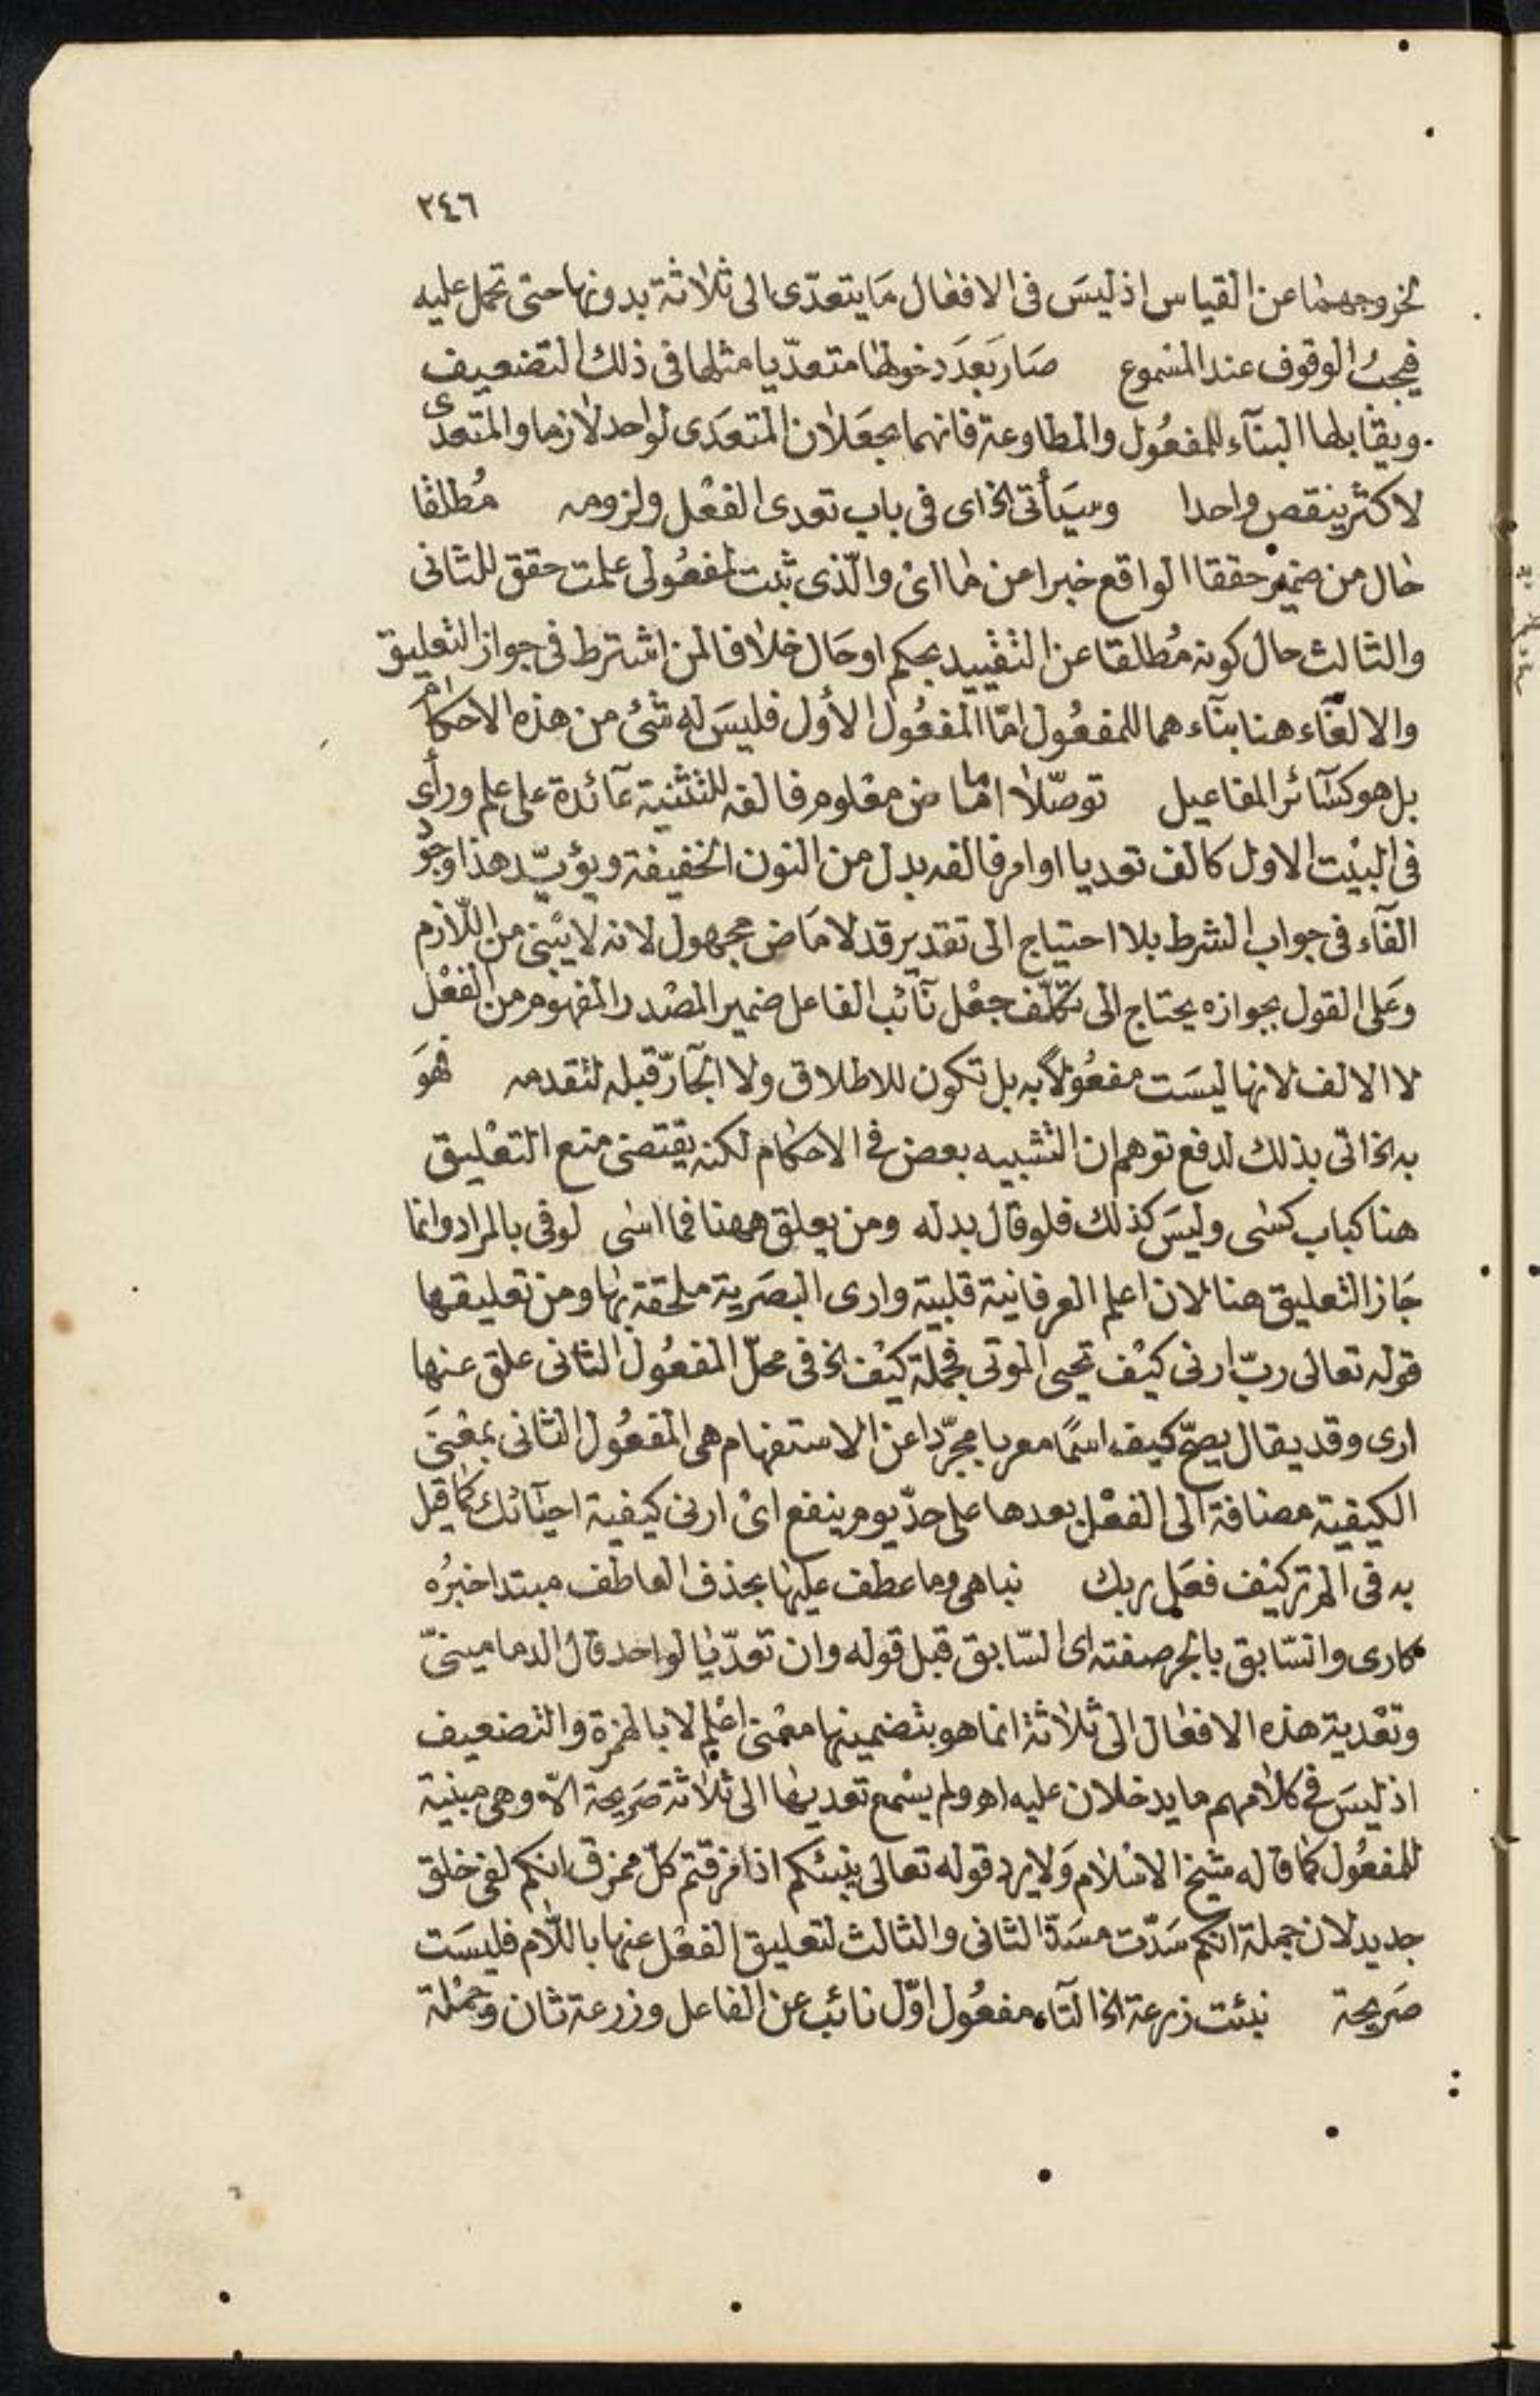 ٢٤٦
لخروجهما عن القياس اذ ليس فى الافعال ما يتعدّى الى ثلاثة بدونها حتى تحمل عليه
فيجب الوقوف عند المسموع صار بعد دخولها متعدّيا مثلها فى ذلك التضعيف
ويقابلها البنآء للمفعول والمطاوعة فانهما يجعلان المتعدى لواحد لازما والمتعدى
لاكثر ينقص واحدا وسيأتى الخ اى فى باب تعدى الفعل ولزومه مُطلقا
حال من ضمير حققا الواقع خبرا عن ما اى والّذى ثبت لمفعولى علمت حقق للثانى
والثالث حال كونه مُطلقا عن التقييد بحكم او حال خلافا لمن اشترط فى جواز التعليق
والالغآء هنا بنآءهما للمفعول امّا المفعول الأول فليس له شئ من هذه الاحكام
بل هو كسآئر المفاعيل توصّلا اما ماض معلوم فالفه للتثنية عآئدة على علم ورأى
فى البيت الاول كالف تعديا او امر فالفه بدل من النون الخفيفة ويؤيّد هذا وجود
الفآء فى جواب الشرط بلا احتياج الى تقدير قد لا ماض مجهول لانه لا يبنى من اللّازم
وعلى القول بجوازه يحتاج الى تكلّف جعل نآئب الفاعل ضمير المصدر المفهوم من الفعل
لا الالف لانها ليست مفعولاً به بل تكون للاطلاق ولا الجآرّ قبله لتقدمه فهو
به الخ اتى بذلك لدفع توهم ان التشبيه بعض فى الاحكام لكنه يقتضى منع التعليق
هنا كباب كسى وليس كذلك فلو قال بدله ومن يعلق ههنا فما اسى لوفى بالمراد وانما
جاز التعليق هنا لان اعلم العرفانية قلبية وارى البصرية ملحقة بها ومن تعليقها
قوله تعالى ربّ ارنى كيف تحيى الموتى فجملة كيف الخ فى محلّ المفعول الثانى علق عنها
ارى وقد يقال يصحّ كيف اسمًا معربا مجرّدا عن الاستفهام هى المفعول الثانى بمعنى
الكيفية مضافة الى الفعل بعدها على حدّ يوم ينفع اى ارنى كيفية احيآئك كما قيل
به فى الم تر كيف فعل ربك نبا هى وما عطف عليها بحذف العاطف مبتدا خبرُه
كارى والسّابق بالجر صفته اى السّابق قبل قوله وان تعدّيا لواحد قال الدمامينىّ
وتعدية هذه الافعال الى ثلاثة انما هو بتضمينها معنى اعلم لا بالهمزة والتضعيف
اذ ليس فى كلامهم ما يدخلان عليه اه ولم يسمع تعديها الى ثلاثة صريحة الّا وهى مبنية
للمفعول كما قاله شيخ الاسلام ولا يرد قوله تعالى ينبئكم اذا مزقتم كلّ ممزق انكم لفى خلق
جديد لان جملة انكم سدّت مسدّ الثانى والثالث لتعليق الفعل عنها باللّام فليست
صريحة نبئت زرعة الخ التآء مفعول اوّل نائب عن الفاعل وزرعة ثان وجملة